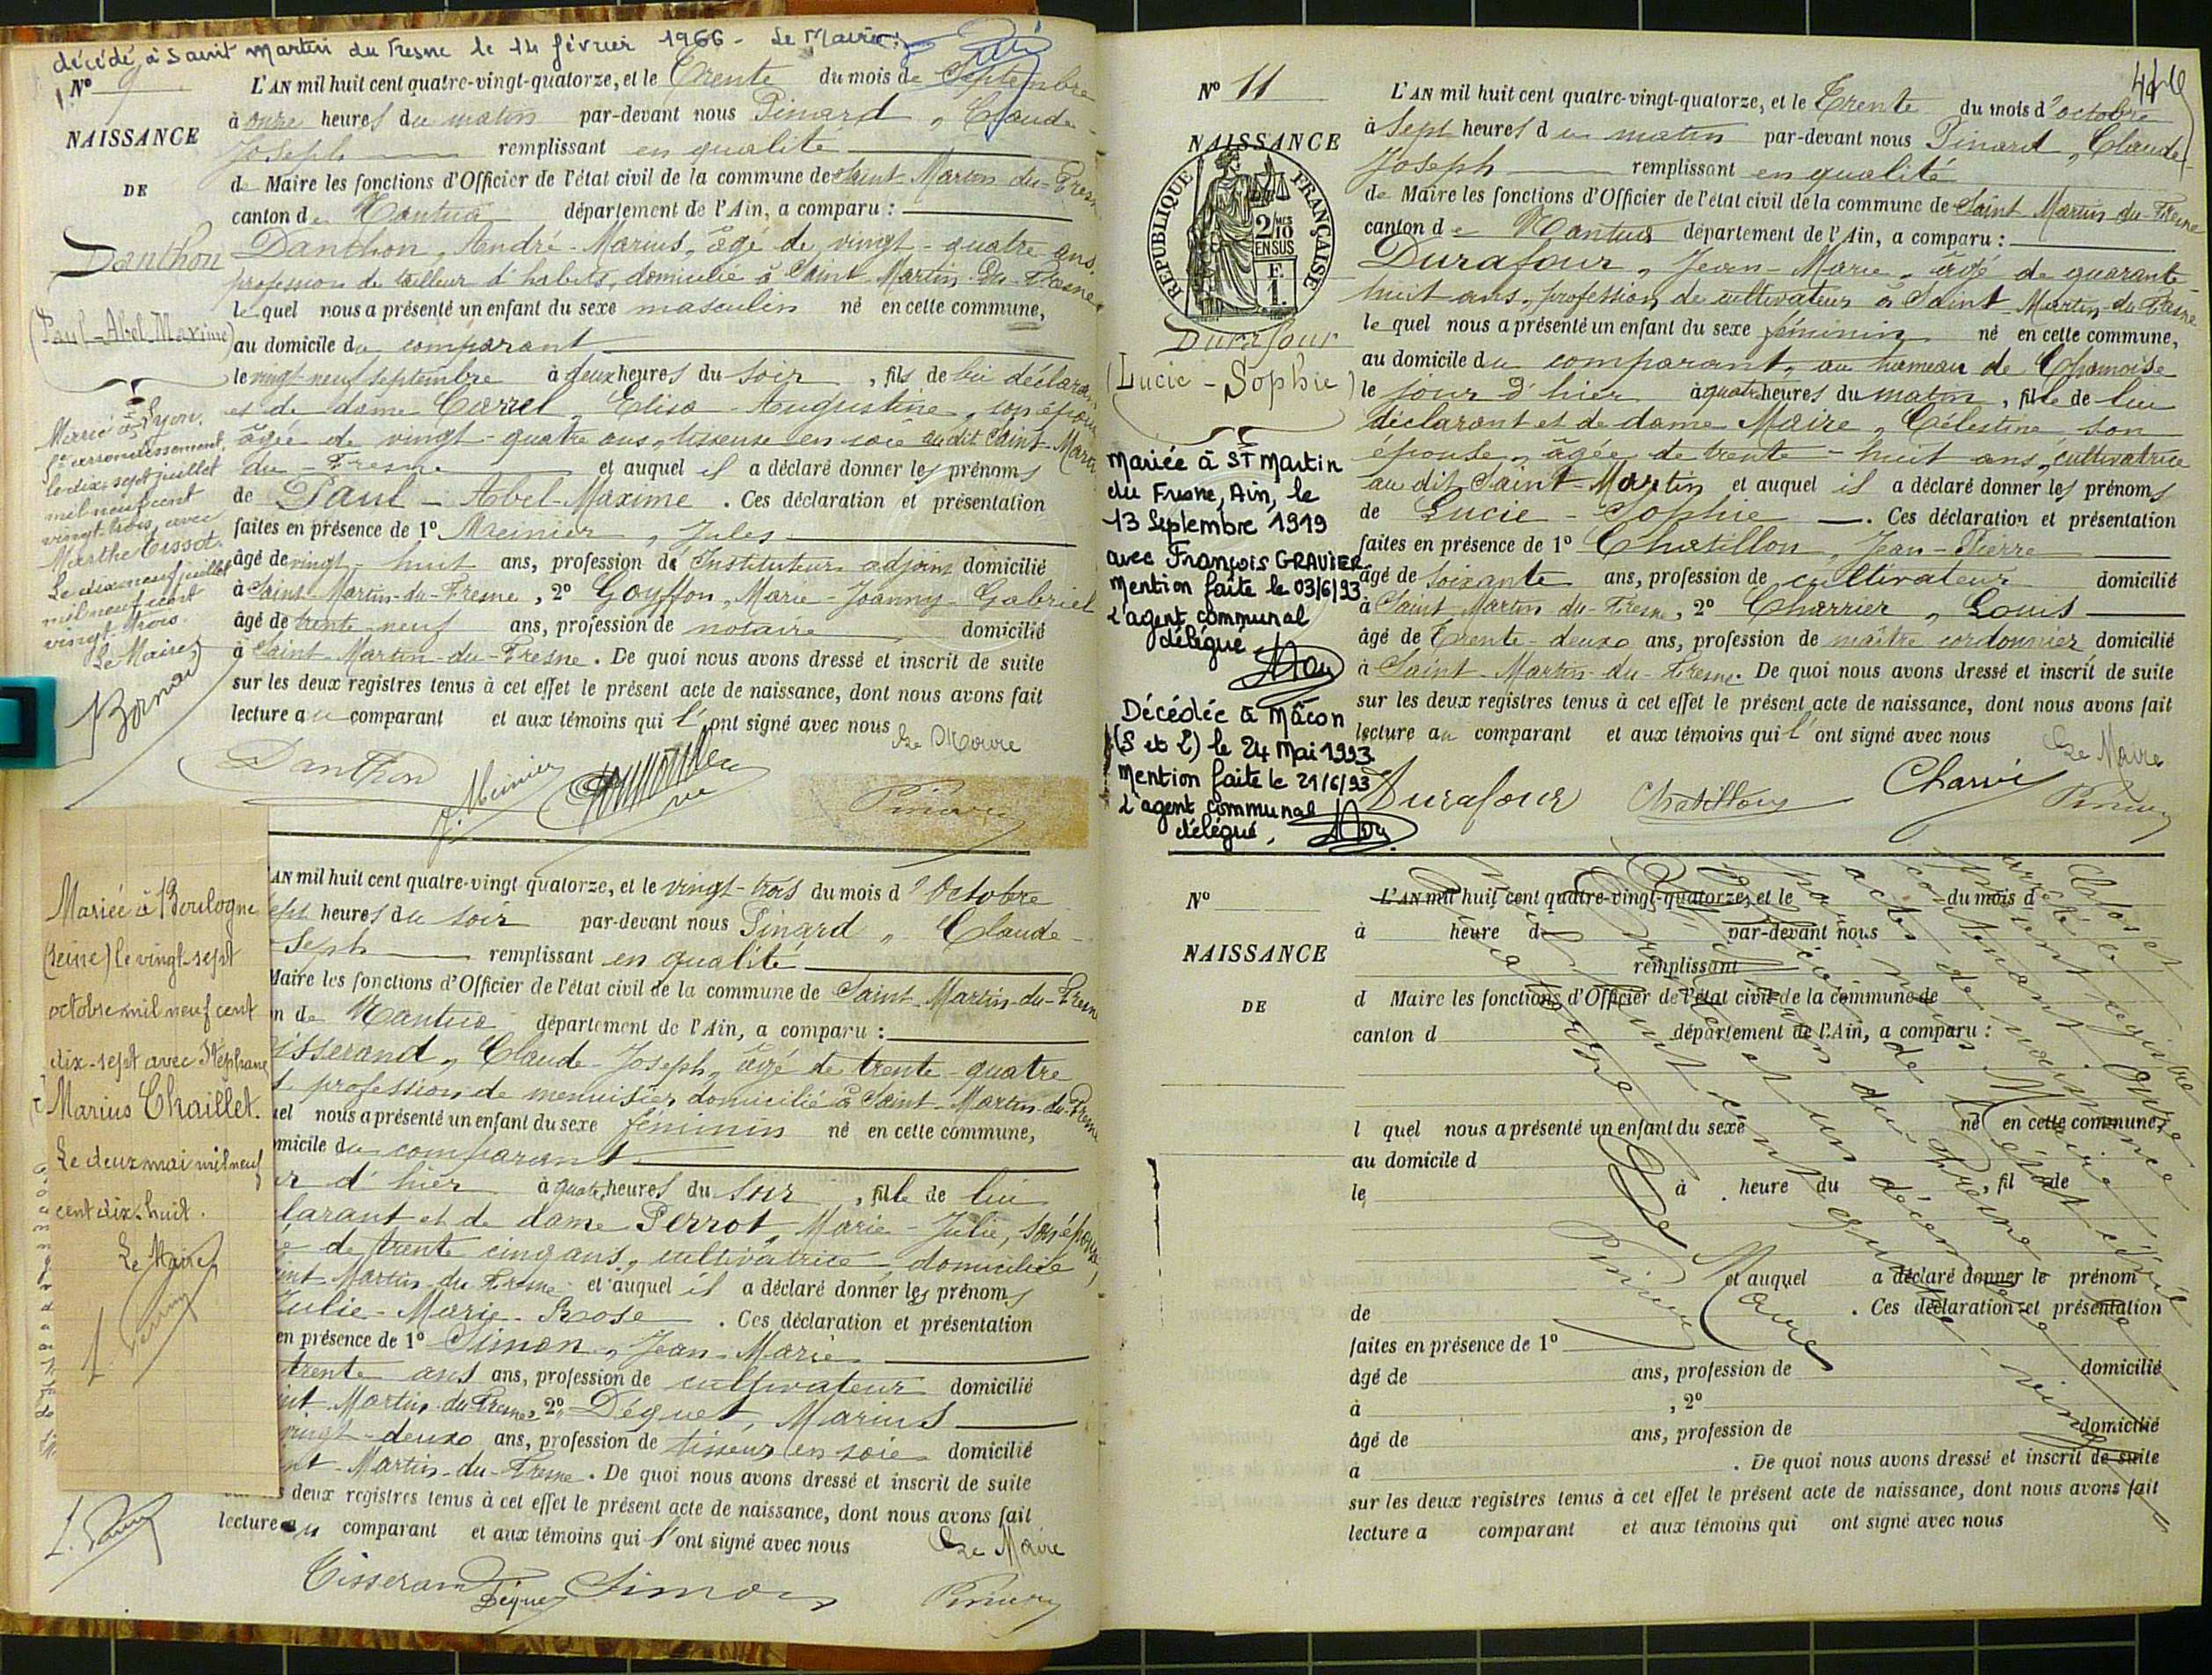 décédé à Saint Martin du Fresne le 14 février 1966 - Le Maire :
N° 9
NAISSANCE
DE
Danthon
(Paul-Abel-Maxime)
Marié à Lyon,
arrondissement,
le dix-sept juillet
mil neuf cent
vingt-trois, avec
Marthe Tissot.
Le dix neuf juillet
mil neuf cent
vingt-trois.
Le Maire,
L'AN mil huit cent quatre-vingt-quatorze, et le Trente du mois de Septembre
à onze heures du matin par-devant nous Pinard, Claude-
Joseph remplissant en qualité
de Maire les fonctions d'Officier de l'état civil de la commune de Saint-Martin-du-Fresne
canton de Nantua département de l'Ain, a comparu :
Danthon, André-Marius, âgé de vingt-quatre ans,
profession de tailleur d'habits, domicilié à Saint-Martin-Du-Fresne
lequel nous a présenté un enfant du sexe masculin né en cette commune,
au domicile du comparant
le vingt-neuf septembre à deux heures du soir, fils de lui déclarant
et de dame Carrel, Elisa-Augustine, son épouse
âgée de vingt-quatre ans, tisseuse en soie au dit Saint-Martin
du-Fresne et auquel il a déclaré donner les prénoms
de Paul-Abel-Maxime. Ces déclaration et présentation
faites en présence de 1° Meinier, Jules
âgé de vingt-huit ans, profession de Instituteur adjoint domicilié
à Saint-Martin-du-Fresne, 2° Goyffon, Marie-Joanny-Gabriel
âgé de trente-neuf ans, profession de notaire domicilié
à Saint-Martin-du-Fresne. De quoi nous avons dressé et inscrit de suite
sur les deux registres tenus à cet effet le présent acte de naissance, dont nous avons fait
lecture au comparant et aux témoins qui l'ont signé avec nous Le Maire
Danthon J. Meinier Pinard
Mariée à Boulogne
(Seine) le vingt-sept
octobre mil neuf cent
dix-sept avec Stéphane
Marius Chaillet.
Le deux mai mil neuf
cent dix-huit.
Le Maire,
AN mil huit cent quatre-vingt quatorze, et le vingt-trois du mois d'Octobre
ept heures du soir par-devant nous Pinard, Claude-
seph remplissant en qualité
Maire les fonctions d'Officier de l'état civil de la commune de Saint-Martin-du-Fresne
n de Nantua département de l'Ain, a comparu :
isserand, Claude-Joseph, âgé de trente-quatre
s profession de menuisier domicilié à Saint-Martin-du-Fresne
uel nous a présenté un enfant du sexe féminin né en cette commune,
omicile du comparant
r d'hier à quatre heures du soir, fille de lui
larant et de dame Perrot, Marie-Julie, son épouse,
e de trente cinq ans, cultivatrice domiciliée
int Martin-du-Fresne et auquel il a déclaré donner les prénoms
Julie-Marie-Rose. Ces déclaration et présentation
en présence de 1° Simon, Jean-Marie
trente ans ans, profession de cultivateur domicilié
int Martin-du-Fresne, 2° Déguet, Marius
vingt-deux ans, profession de tisseur en soie domicilié
nt-Martin-du-Fresne. De quoi nous avons dressé et inscrit de suite
s deux registres tenus à cet effet le présent acte de naissance, dont nous avons fait
lecture au comparant et aux témoins qui l'ont signé avec nous Le Maire
Tisserand Déguet Simon Pinard
N° 11
NAISSANCE
REPUBLIQUE FRANÇAISE
2/10 EN SUS
F. 1.
Durafour
(Lucie-Sophie)
Mariée à ST Martin
du Fresne, Ain, le
13 Septembre 1919
avec François GRAVIER
Mention faite le 03/6/93
L'agent communal
délégué
Décédée à Mâcon
(S et L) le 24 Mai 1993
Mention faite le 21/6/93
L'agent communal
délégué,
L'AN mil huit cent quatre-vingt-quatorze, et le Trente du mois d'octobre
à Sept heures du matin par-devant nous Pinard, Claude-
Joseph remplissant en qualité
de Maire les fonctions d'Officier de l'état civil de la commune de Saint-Martin-du-Fresne
canton de Nantua département de l'Ain, a comparu :
Durafour, Jean-Marie, âgé de quarante-
huit ans, profession de cultivateur à Saint-Martin-du-Fresne
lequel nous a présenté un enfant du sexe féminin né en cette commune,
au domicile du comparant, au hameau de Chamoise
le jour d'hier à quatre heures du matin, fille de lui
déclarant et de dame Maire, Célestine son
épouse, âgée de trente-huit ans, cultivatrice
au dit Saint-Martin et auquel il a déclaré donner les prénoms
de Lucie-Sophie. Ces déclaration et présentation
faites en présence de 1° Chatillon, Jean-Pierre
âgé de soixante ans, profession de cultivateur domicilié
à Saint Martin-du-Fresne, 2° Charrier, Louis
âgé de Trente-deux ans, profession de maître cordonnier domicilié
à Saint-Martin-du-Fresne. De quoi nous avons dressé et inscrit de suite
sur les deux registres tenus à cet effet le présent acte de naissance, dont nous avons fait
lecture au comparant et aux témoins qui l'ont signé avec nous Le Maire
Durafour Chatillon Pinard
N°
NAISSANCE
DE
L'AN mil huit cent quatre-vingt-quatorze, et le du mois d
à heure d par-devant nous
remplissant
d Maire les fonctions d'Officier de l'état civil de la commune de
canton d département de l'Ain, a comparu :
l quel nous a présenté un enfant du sexe né en cette commune,
au domicile d
le à heure du , fil de
et auquel a déclaré donner le prénom
de . Ces déclaration et présentation
faites en présence de 1°
âgé de ans, profession de domicilié
à , 2°
âgé de ans, profession de domicilié
à . De quoi nous avons dressé et inscrit de suite
sur les deux registres tenus à cet effet le présent acte de naissance, dont nous avons fait
lecture a comparant et aux témoins qui ont signé avec nous
Le Maire
Pinard